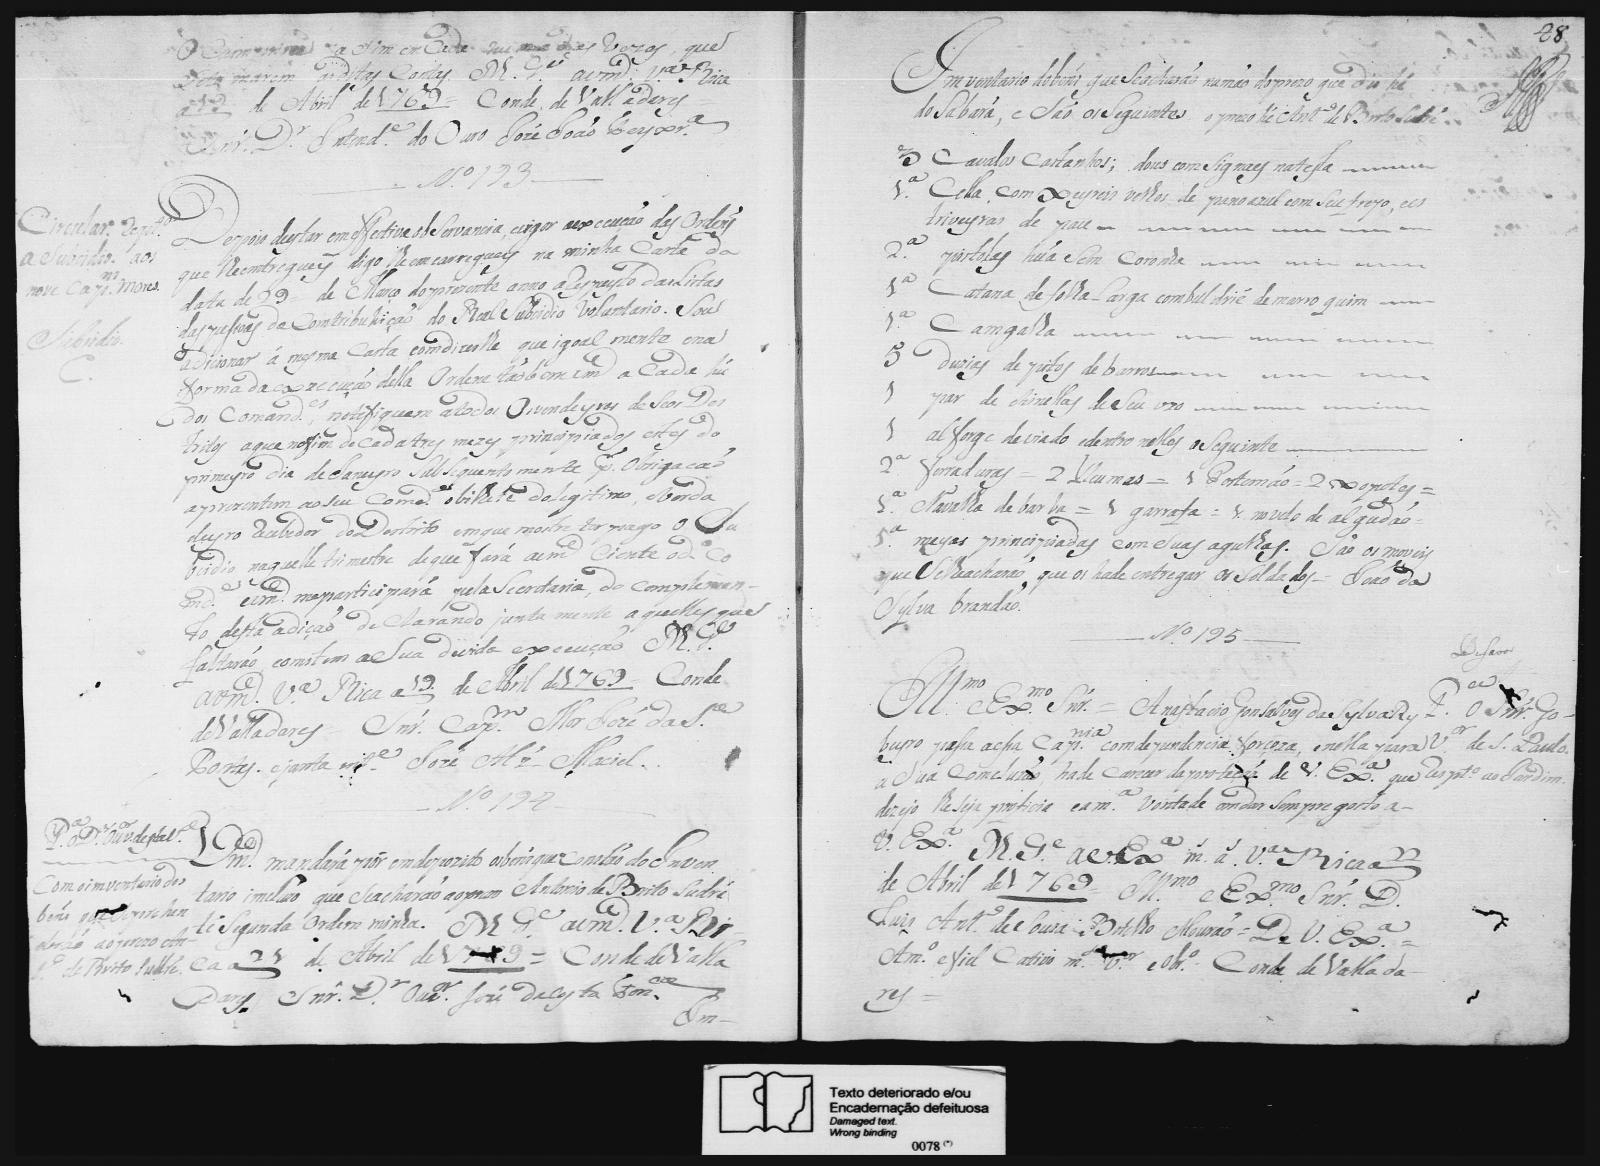 a sim em Cada hua das vezes, que
marem asditas Contas. M. G.e avmd. V.a Rica
a 19 de Abril de 1769 = Conde de Valladares =
Snr. D.r Intend.e do Ouro José João Teyxr.a
N.o 193
Circular. Resp.to
a Subsidio. aos
nove Cap.m mores.
Subsidio.
C.
Depois de estar em efectiva observancia, e vigor a execução das Ordens
que lhe entreguey digo lhe emcarreguey na minha Carta da
data de 29 de Março do prezente anno a respeyto das Listas
das pesoas da Contribuhição do Real Subsidio Voluntario. Sou
adicionar á mesma Carta com dizerlhe que igoal mente e na
forma da execução della Ordene tãobem vmd a Cada hú
dos Comand.es, notefiquem a todos Os vendeyros de Seos Des
tritos a que no fim de Cada tres mezes principiados estes do
primeyro dia de Janeyro Subsequente mente p.r Obrigação
aprezentem ao seu Comd.e o bilhete do legitimo, e verda
deyro Recebedor do Destrito em que mostre ter pago O Su
bcidio naquelle trimestre de que fará a vmd Ciente o d.o Co
md.e e vmd. me participará pela Secretaria, do Complemen-
to desta adição declarando junta mente aquelles que
faltarão, comtem a Sua devida execução M. G.e
avmd. V.a Rica a 19 de Abril de 1769 = Conde
de Valladares = Snr. Cap.m Mor José da S.a
Pontes. e junta m.te José Alz Maciel.
N.o 194
P.a o D.r Ouv.or desta V.a
Com o imventario dos
bens que se aprehen
derão ao prezo An
t.o de Brito Subtil.
Vmd. mandará pôr em depozito os bens que Constão do Inven
tario imcluzo que Se acharão ao prezo Antonio de Brito Subti
le Segundo Ordem minha. M G.e avmd. V.a Ri-
ca a 21 de Abril de 1769 = Conde de Valla
Dares Snr. D.r Ouv.or José da Costa Fon.ca
Im-
28
Imventario dos bens que Se acharão na mão do prezo que
do Sabará, e São os Seguintes o prezo hé Ant.o de Brito Subti
3 Cavalos Castanhos; dous com Signaes na testa
1.a Cella, Com Xeyreis velhos de pano azul com Seu froyo, e es
triveyras de pau
2.a pistolas hua Sem Coronha
1.a Catana de folha Larga com buldrié de marroquim
1.a Cangalha
5 Duzias de pitos de barro
1 par de chinellas de Seu uzo
1 alforge de viado e dentro nelles o Seguinte
2.a ferraduras = 2 = 1 Portemão = 2 =
1.a Navalha de barba = 1 garrafa = 1 novelo de algudão =
1.a meyas principiadas Com Suas agulhas. São os moveis
que Se lhe acharão, que os hade entregar os Soldados = João da
Sylva brandão.
N.o 195
Ill.mo e Ex.mo Snr. = Anastacio Gonsalves da Sylva Ry
beyro pasa a essa Cap.nia com dependencia forçoza, e nella para
a Sua Comcluzão hade Carecer da proteção de V. Ex.a que
dezejo lhe Seja propicia e a m.a vontade em dar Sempre gosto a
V. Ex.a M. G.e a V. Ex.a m. a. V.a Rica a 22
de Abril de 1769 = Ill.mo e Ex.mo Snr. D.
Luis Ant.o de Souza Botelho Mourão = De V. Ex.a =
Am.o e fiel Cativo m.to V.or e Obr.o = Conde de Vallada-
res =
P.a O Snr. Go-
V.or de S. Paulo.
Resp.to ao
Texto deteriorado e/ou
Encadernação defeituosa
Damaged text.
Wrong binding
0078 (*)